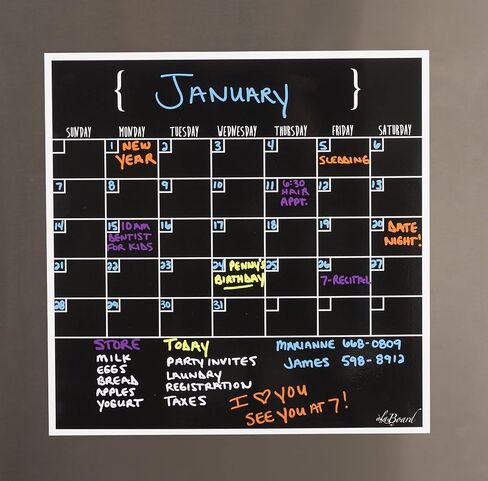 { JANUARY }
SUNDAY MONDAY TUESDAY WEDNESDAY THURSDAY FRIDAY SATURDAY
1 NEW YEAR 2 3 4 5 SLEDDING 6
7 8 9 10 11 6:30 HAIR APPT. 12 13
14 15 10AM DENTIST FOR KIDS 16 17 18 19 20 DATE NIGHT!
21 22 23 24 PENNY'S BIRTHDAY 25 26 7-RECITAL 27
28 29 30 31
STORE
MILK
EGGS
BREAD
APPLES
YOGURT
TODAY
PARTY INVITES
LAUNDRY
REGISTRATION
TAXES
MARIANNE 668-0809
JAMES 598-8912
I ♡ YOU
SEE YOU AT 7!
àlaBoard